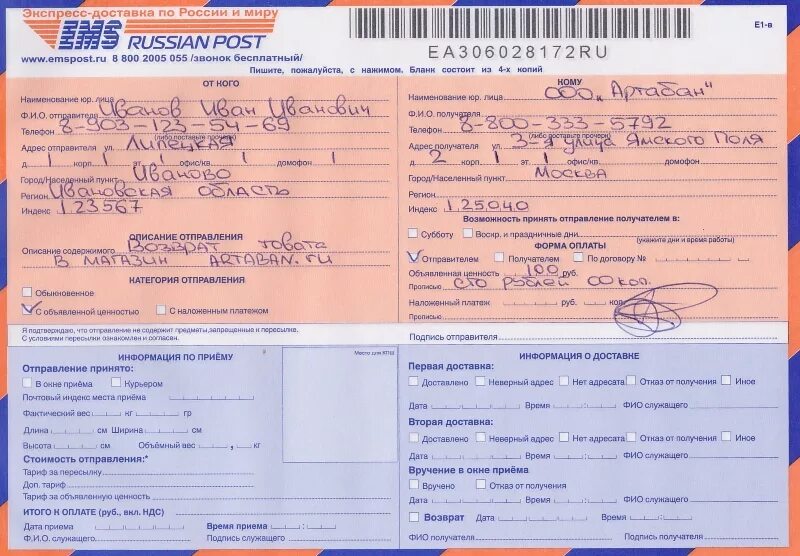 Экспресс-доставка по России и миру
EMS RUSSIAN POST
www.emspost.ru 8 800 2005 055 /звонок бесплатный/
EA306028172RU
E1-в
Пишите, пожалуйста, с нажимом. Бланк состоит из 4-х копий
ОТ КОГО
Наименование юр. лица
Ф.И.О. отправителя Иванов Иван Иванович
Телефон 8-903-123-54-69
(либо поставьте прочерк)
Адрес отправителя ул. Липецкая
д. 1 корп. 1 эт. 1 офис/кв. 1 домофон 1
Город/Населенный пункт Иваново
Регион Ивановская область
Индекс 123567
ОПИСАНИЕ ОТПРАВЛЕНИЯ
Описание содержимого Возврат товата
в магазин ARTABAN.ru
КАТЕГОРИЯ ОТПРАВЛЕНИЯ
Обыкновенное
С объявленной ценностью С наложенным платежом
КОМУ
Наименование юр. лица ООО "Артабан"
Ф.И.О. получателя
Телефон 8-800-333-5792
(либо поставьте прочерк)
Адрес получателя ул. 3-я улица Ямского Поля
д. 2 корп. 1 эт. 1 офис/кв. домофон
Город/Населенный пункт Москва
Регион
Индекс 125040
Возможность принять отправление получателем в:
Субботу Воскр. и праздничные дни
(укажите дни и время работы)
ФОРМА ОПЛАТЫ
Отправителем Получателем По договору №
Объявленная ценность 100 руб.
Прописью сто рублей 00 коп.
Наложенный платеж руб. коп.
Прописью
Я подтверждаю, что отправление не содержит предметы, запрещенные к пересылке.
С условиями пересылки ознакомлен и согласен.
Подпись отправителя
ИНФОРМАЦИЯ ПО ПРИЁМУ
Место для КПШ
Отправление принято:
В окне приёма Курьером
Почтовый индекс места приёма
Фактический вес кг гр
Длина см Ширина см
Высота см Объёмный вес , кг
Стоимость отправления:*
Тариф за пересылку
Доп. тариф
Тариф за объявленную ценность
ИТОГО К ОПЛАТЕ (руб., вкл. НДС)
Дата приема Время приема :
Ф.И.О. служащего Подпись служащего
ИНФОРМАЦИЯ О ДОСТАВКЕ
Первая доставка:
Доставлено Неверный адрес Нет адресата Отказ от получения Иное
Дата Время : ФИО служащего
Вторая доставка:
Доставлено Неверный адрес Нет адресата Отказ от получения Иное
Дата Время : ФИО служащего
Вручение в окне приёма
Вручено Отказ от получения
Дата Время : ФИО служащего
Возврат Дата Время :
ФИО получателя Подпись получателя